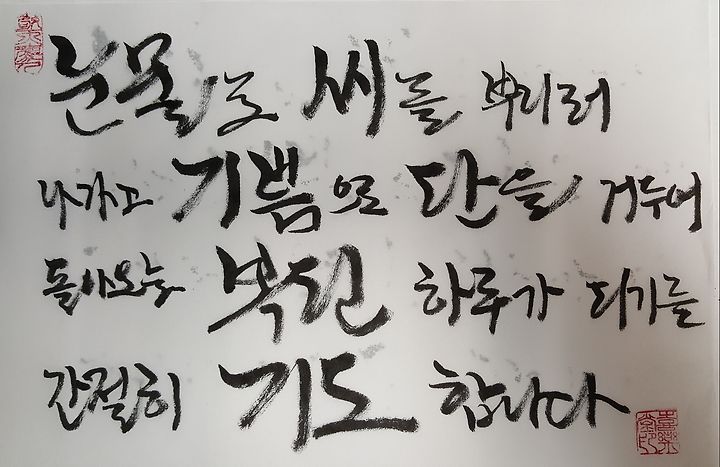 눈물로 씨를 뿌리러
나가고 기쁨으로 단을 거두어
돌아오는 복된 하루가 되기를
간절히 기도 합니다